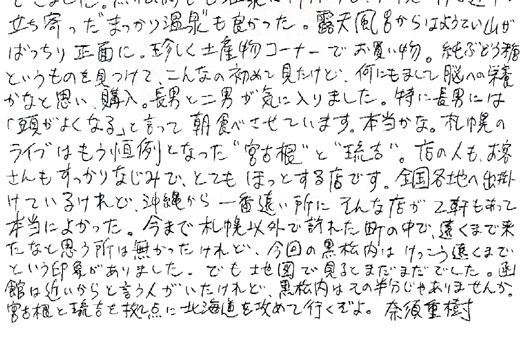 立ち寄った"まっかり温泉"も良かった。露天風呂からはようてい山が
ばっちり正面に。珍しく土産物コーナーでお買い物。純ぶどう糖
というものを見つけて、こんなの初めて見たけど、何にもまして脳への栄養
かなと思い、購入。長男と二男が気に入りました。特に長男には
「頭がよくなる」と言って朝食べさせています。本当かな。札幌の
ライブはもう恒例となった"宮古根"と"琉吉"。店の人も、お客
さんもすっかりなじみで、とてもほっとする店です。全国各地へ出掛
けているけれど、沖縄から一番遠い所にそんな店が2軒もあって
本当によかった。今まで札幌以外で訪れた町の中で、遠くまで来
たなと思う所は無かったけれど、今回の黒松内はけっこう遠くまで
という印象がありました。でも地図で見るとまだまだでした。函
館は近いからと言う人がいたけれど、黒松内はその半分じゃありませんか。
宮古根と琉吉を拠点に北海道を攻めて行くぞよ。 奈須重樹